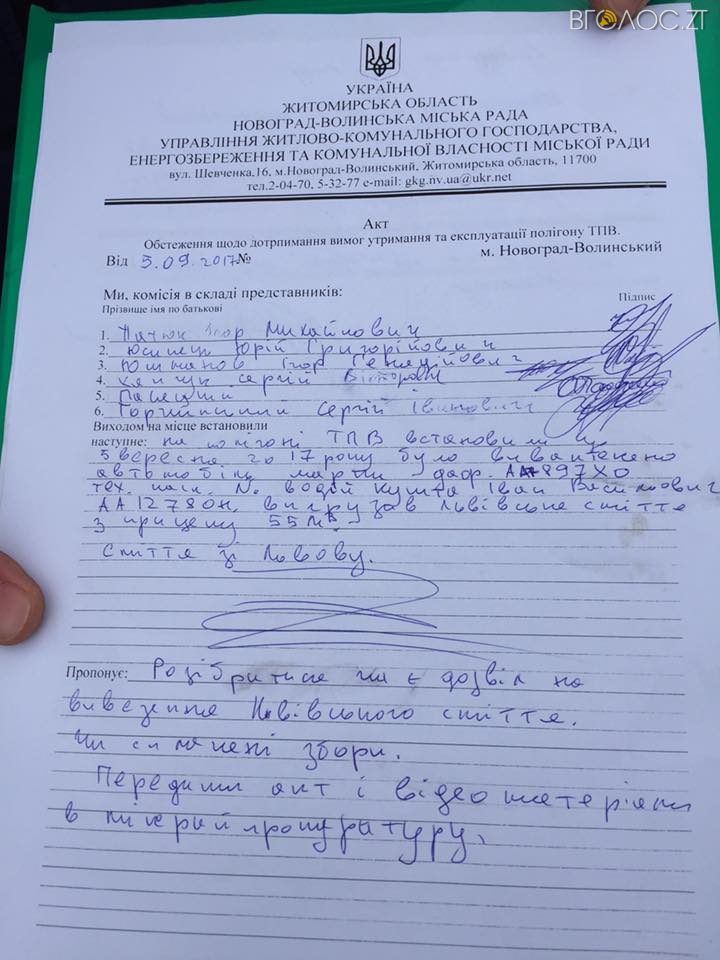 ВГОЛОС.ZT
УКРАЇНА
ЖИТОМИРСЬКА ОБЛАСТЬ
НОВОГРАД-ВОЛИНСЬКА МІСЬКА РАДА
УПРАВЛІННЯ ЖИТЛОВО-КОМУНАЛЬНОГО ГОСПОДАРСТВА,
ЕНЕРГОЗБЕРЕЖЕННЯ ТА КОМУНАЛЬНОЇ ВЛАСНОСТІ МІСЬКОЇ РАДИ
вул. Шевченка,16, м.Новоград-Волинський, Житомирська область, 11700
тел.2-04-70, 5-32-77 e-mail: gkg.nv.ua@ukr.net
Акт
Обстеження щодо дотрпимання вимог утримання та експлуатації полігону ТПВ.
Від 5.09.2017 № м. Новоград-Волинський
Ми, комісія в складі представників:
Прізвище імя по батькові Підпис
1. Ігор Михайлович
2. Юрій Григорійович
3. Ігор Генадійович
4. Сергій
5.
6. Сергій Іванович
Виходом на місце встановили
наступне: на полігоні ТПВ встановили що
5 вересня 2017 року було вивантажено
автомобіль марки даф. АА 897ХО
водій Іван Васильович
АА 1278 вигрузав Львівське сміття
з прицепу 55 м3
Сміття зі Львову.
Пропонує: Розібраться чи є дозвіл на
вивезення Львівського сміття.
Чи сплачені збори.
Передати акт і відео матеріали
в прокуратуру.